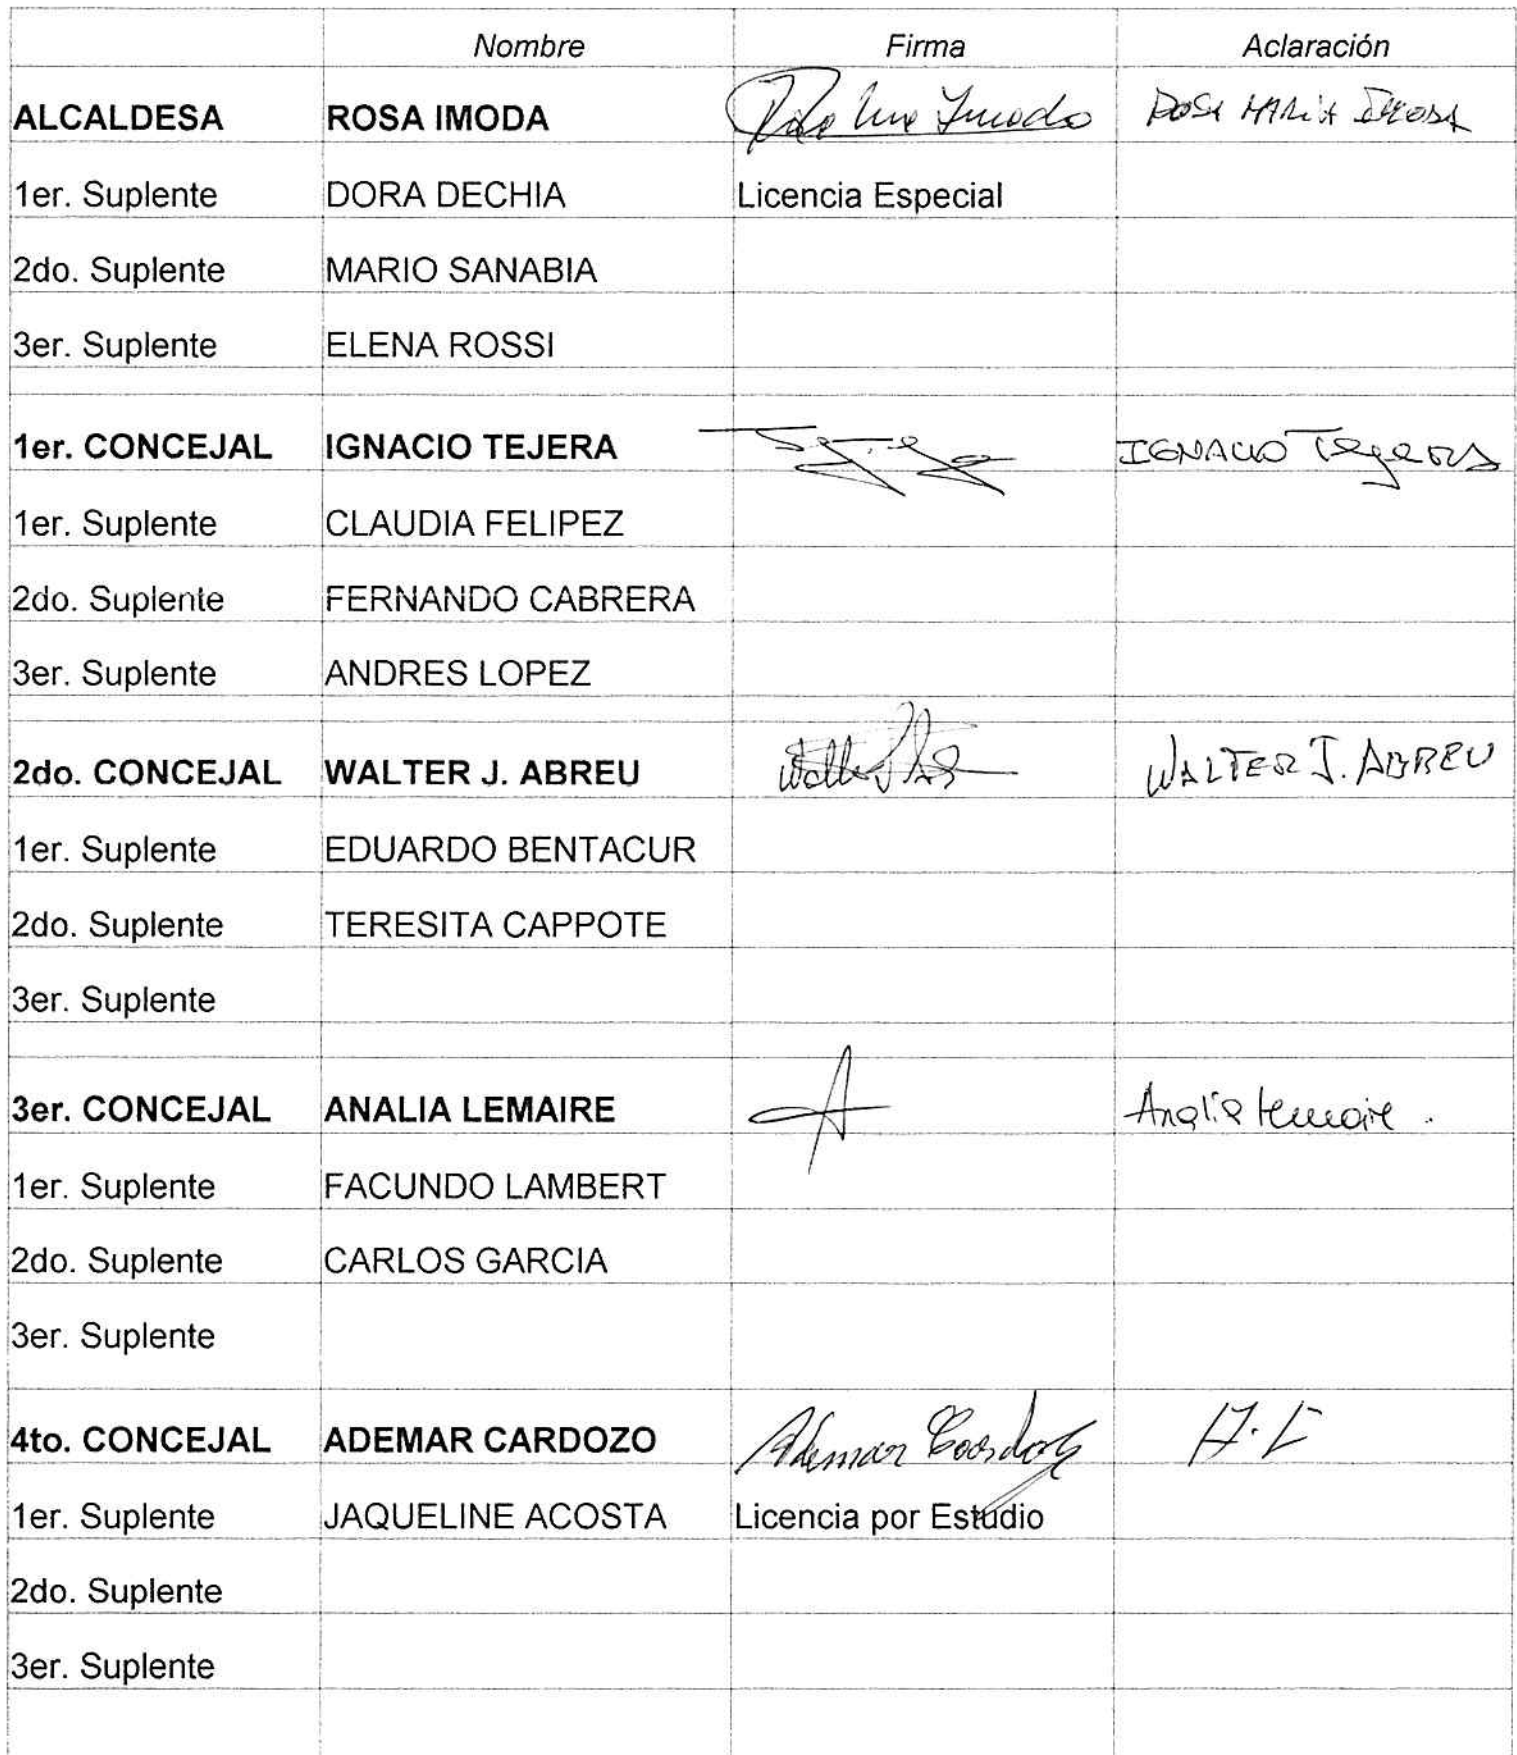 Nombre Firma Aclaración
ALCALDESA ROSA IMODA Rosa Imoda ROSA MARIA IMODA
1er. Suplente DORA DECHIA Licencia Especial
2do. Suplente MARIO SANABIA
3er. Suplente ELENA ROSSI
1er. CONCEJAL IGNACIO TEJERA IGNACIO Tejera
1er. Suplente CLAUDIA FELIPEZ
2do. Suplente FERNANDO CABRERA
3er. Suplente ANDRES LOPEZ
2do. CONCEJAL WALTER J. ABREU WALTER J. ABREU
1er. Suplente EDUARDO BENTACUR
2do. Suplente TERESITA CAPPOTE
3er. Suplente
3er. CONCEJAL ANALIA LEMAIRE A Analia Lemaire.
1er. Suplente FACUNDO LAMBERT
2do. Suplente CARLOS GARCIA
3er. Suplente
4to. CONCEJAL ADEMAR CARDOZO Ademar Cardozo A.C
1er. Suplente JAQUELINE ACOSTA Licencia por Estudio
2do. Suplente
3er. Suplente